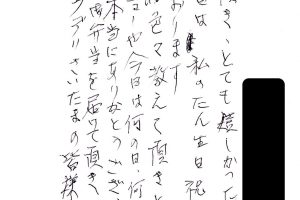 頂き とても嬉しかった
は 私のたん生日 祝
おります
色々教えて頂きと
ューや今日は何の日、何
本当にありがとうござ
弁当を届けて頂き
さいたまの皆様